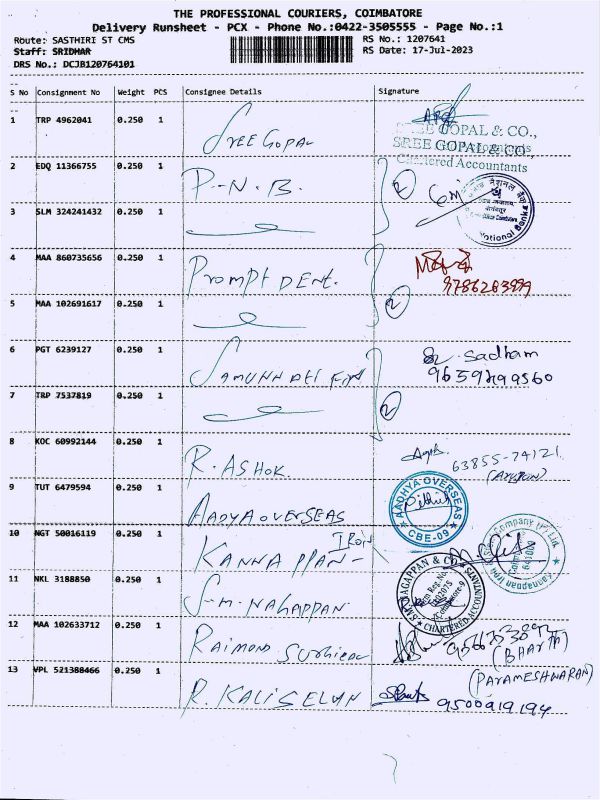 THE PROFESSIONAL COURIERS, COIMBATORE
Delivery Runsheet - PCX - Phone No.:0422-3505555 - Page No.:1
Route: SASTHIRI ST CMS RS No.: 1207641
Staff: SRIDHAR RS Date: 17-Jul-2023
DRS No.: DCJB120764101
S No Consignment No Weight PCS Consignee Details Signature
1 TRP 4962041 0.250 1 SREE GOPAL
SREE GOPAL & CO.,
SREE GOPAL & CO.,
Chartered Accountants
2 EDQ 11366755 0.250 1 P-N.B. 2
3 SLM 324241432 0.250 1
4 MAA 860735656 0.250 1 PROMPT DENT.
9786283999
5 MAA 102691617 0.250 1 2
6 PGT 6239127 0.250 1 Sadham
7 TRP 7537819 0.250 1 2
8 KOC 60992144 0.250 1 R. ASHOK 63855-74121
9 TUT 6479594 0.250 1 AADYA OVERSEAS AADHYA OVERSEAS CBE-09
10 NGT 50016119 0.250 1 KANNAPPAN - IRON
11 NKL 3188850 0.250 1 S-M. NAGAPPAN
CHARTERED ACCOUNTANTS
12 MAA 102633712 0.250 1 RAIMOND
(BHARTH)
13 VPL 521388466 0.250 1 R. KALISELVAN (PARAMESHWARAN)
9500919194